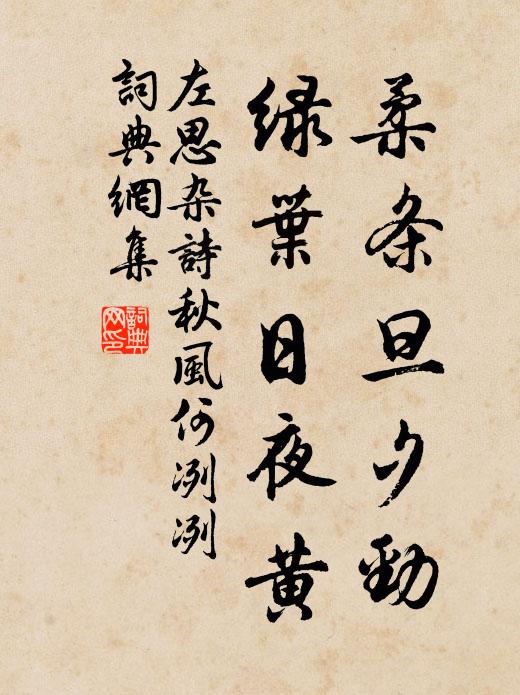 柔条旦夕勁
绿葉日夜黄
左思杂詩秋風何冽冽
詞典網集
詞典网印